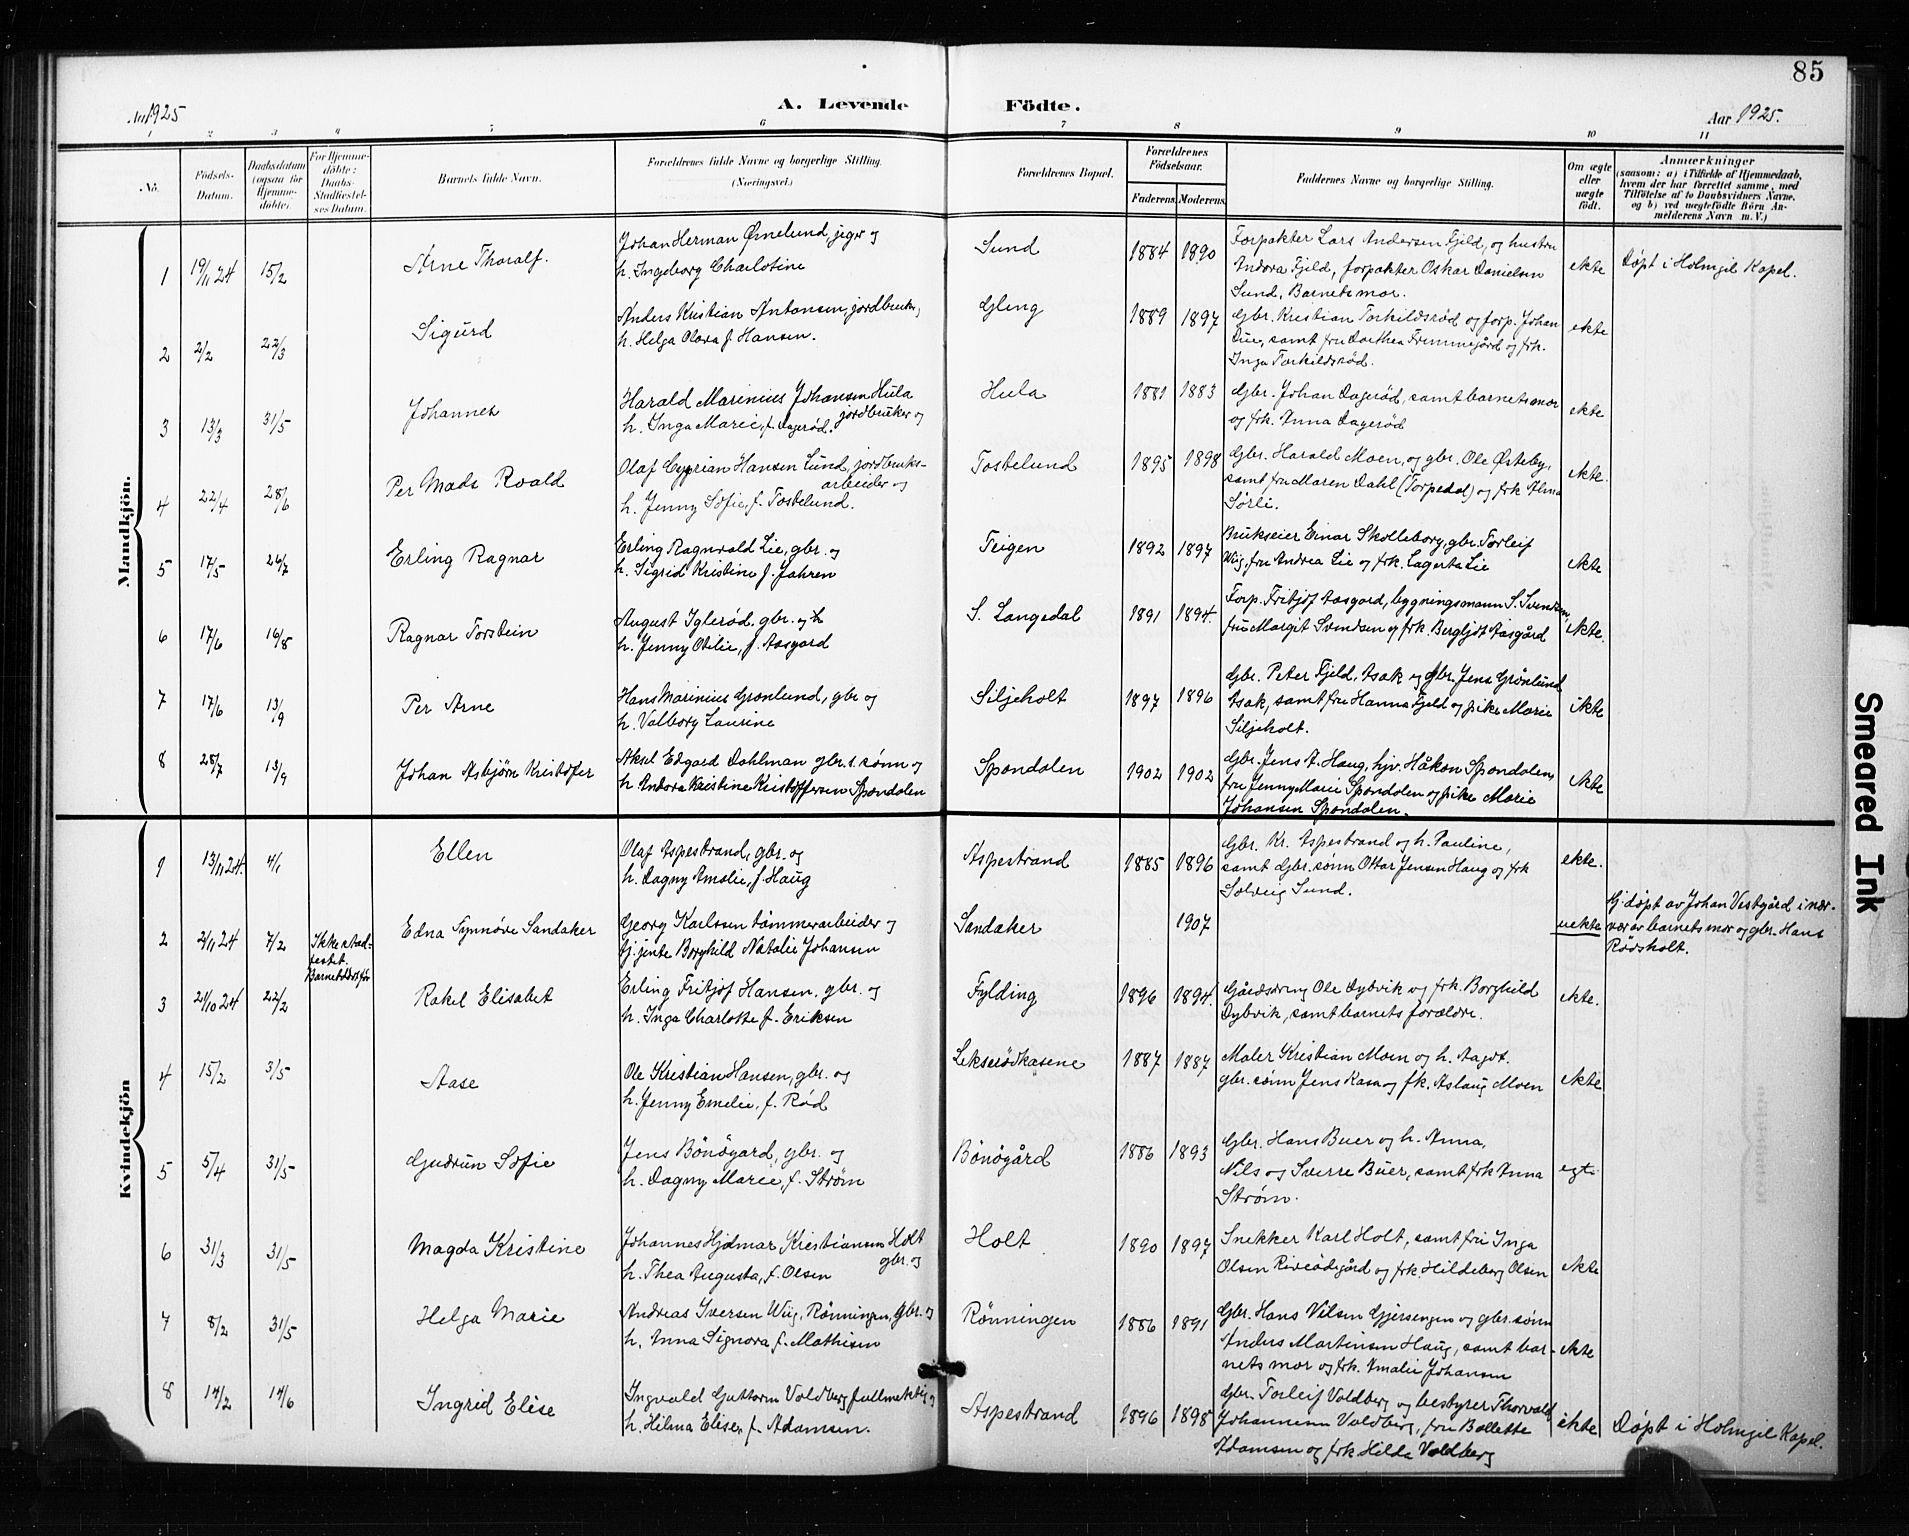 85
Aar 1925
A. Levende Födte.
Aar 1925.
1 2 3 4 5 6 7 8 9 10 11
No.
Födsels-Datum.
Daabsdatum (ogsaa for Hjemme-döbte).
For Hjemme-döbte: Daabs-Stadfæstel-ses Datum.
Barnets fulde Navn.
Forældrenes fulde Navne og borgerlige Stilling. (Næringsvei.)
Forældrenes Bopæl.
Forældrenes Födselsaar.
Faderens. Moderens.
Faddernes Navne og borgerlige Stilling.
Om ægte eller uægte födt.
Anmærkninger
(saasom: a) i Tilfælde af Hjemmedaab,
hvem der har forrettet samme, med
Tilföielse af to Daabsvidners Navne,
og b) ved uægtefödte Börn An-
melderens Navn m. V.)
Mandkjön.
1 19/11 24 15/2 Arne Thoralf. Johan Herman Ørnelund, jeger og
h. Ingeborg Charlotine
Sund 1884 1890 Forpakter Lars Andersen Fjeld, og hustru
Andora Fjeld, forpakter Oskar Danielsen
Sund, Barnets mor.
ekte Døpt i Holmgil Kapel.
2 2/2 22/3 Sigurd Anders Kristian Antonsen, jordbruker,
h. Helga Olava f. Hansen.
Gling 1889 1897 Gbr. Kristian Torkildsrød og forp. Johan
Due, samt fru Dorthea Frimmegård og frk.
Inga Torkildsrød.
ekte
3 13/3 31/5 Johannes Harald Marinius Johansen Hula
jordbruker og
h. Inga Marie, f. Dagerød.
Hula 1881 1883 Gbr. Johan Dagerød, samt barnets mor
og frk. Anna Dagerød
ekte
4 22/4 28/6 Per Mads Roald Olaf Cyprian Hansen Lund, jordbruks-
arbeider og
h. Jenny Sofie, f. Tostelund.
Tostelund 1895 1898 Gbr. Harald Moen, og gbr. Ole Østeby,
samt fru Maren Dahl (Torpedal) og frk Alma
Sørli.
ekte.
5 17/5 26/7 Erling Ragnar Erling Ragnvald Lie, gbr. og
h. Sigrid Kristine f. Jahren
Teigen 1892 1897 Brukseier Einar Skolleborg, gbr. Torleif
Wiig, fru Andrea Lie og frk. Lagerta Lie
ekte
6 17/6 16/8 Ragnar Torstein August Iglerød, gbr. og h
h. Jenny Otilie, f. Aasgard
S. Langedal 1891 1894. Forp. Fritjof Aasgard, bygningsmann S. Svendsen,
fru Margit Svendsen og frk. Bergljot Aasgård
ekte.
7 17/6 13/9 Per Arne Hans Marinius Grønlund, gbr og
h. Valborg Laurine
Siljeholt 1897 1896 Gbr. Peter Fjeld, Asak og Gbr. Jens Grønlund
Asak, samt fru Hanna Fjeld og pike Marie
Siljeholt.
ekte
8 28/7 13/9 Johan Asbjørn Kristofer Aksel Edgard Dahlman gbr. s. sønn og
h Andora Kristine Kristoffersen Spondalen
Spondalen 1902 1902 Gbr. Jens A. Haug, hjv. Håkon Spondalen,
fru Jenny Marie Spondalen og pike Marie
Johansen Spondalen.
ekte
Kvindekjön
1 13/11 24. 4/1 Ellen Olaf Aspestrand, gbr. og
h. Dagny Amalie, f. Haug
Aspestrand 1885 1896 Gbr. Kr. Aspestrand og h. Pauline,
samt Gbr. sønn Ottar Jensen Haug og frk
Solveig Sund.
ekte.
2 2/11 24 7/2 Ikke stad-
festet.
Edna Synnøve Sandaker Georg Karlsen tømmerarbeider og
tj. jente Borghild Natalie Johansen
Sandaker 1907 uekte Hj. døpt av Johan Vestgård i nær-
vær av barnets mor og gbr. Hans
Rødsholt.
3 21/10 24 22/2 Rakel Elisabet Erling Fritjof Hansen, gbr. og
h. Inga Charlotte f. Eriksen
Fylding 1896 1894. Gårdsdreng Ole Dybvik og frk. Borghild
Dybvik, samt barnets forældre.
ekte.
4 15/2 3/5 Aase Ole Kristian Hansen, gbr. og
h. Jenny Emelie, f. Rød
Lekserødkasene 1887 1887 Maler Kristian Moen og h. Aagot.
gbr. sønn Jens Kasa og fk. Aslaug Moen
ekte
5 5/4 31/5 Gudrun Sofie Jens Bönögard, gbr. og
h. Dagny Marie, f. Strøm
Bönögård 1886 1893 Gbr. Hans Buer og h. Anna,
Nils og Sverre Buer, samt frk Anna
Strøm.
egte
6 31/3 31/5 Magda Kristine Johannes Hjalmar Kristiansen Holt
gbr. og
h. Thea Augusta, f. Olsen
Holt 1890 1897 Snekker Karl Holt, samt fru Inga
Olsen Rivrødsgård og frk. Hildeborg Olsen
ekte
7 8/2 31/5 Helga Marie Andreas Iversen Wiig, Rønningen, gbr. og
h. Anna Signora f. Mathisen
Rønningen 1886 1891 Gbr. Hans Nilsen Gjersengen og gbr. sønn
Anders Martinsen Haug, samt bar-
nets mor og frk. Amalie Johansen
ekte
8 14/2 14/6 Ingrid Elise Ingvald Guttorm Voldberg fullmektig og
h. Hilma Elise, f. Adamsen.
Aspestrand 1896 1898 Gbr. Torleif Voldberg og bestyrer Thorvald
Johannessen Voldberg, fru Bollette
Adamsen og frk Hilda Voldberg
ekte Døpt i Holmgil Kapel.
Smeared Ink